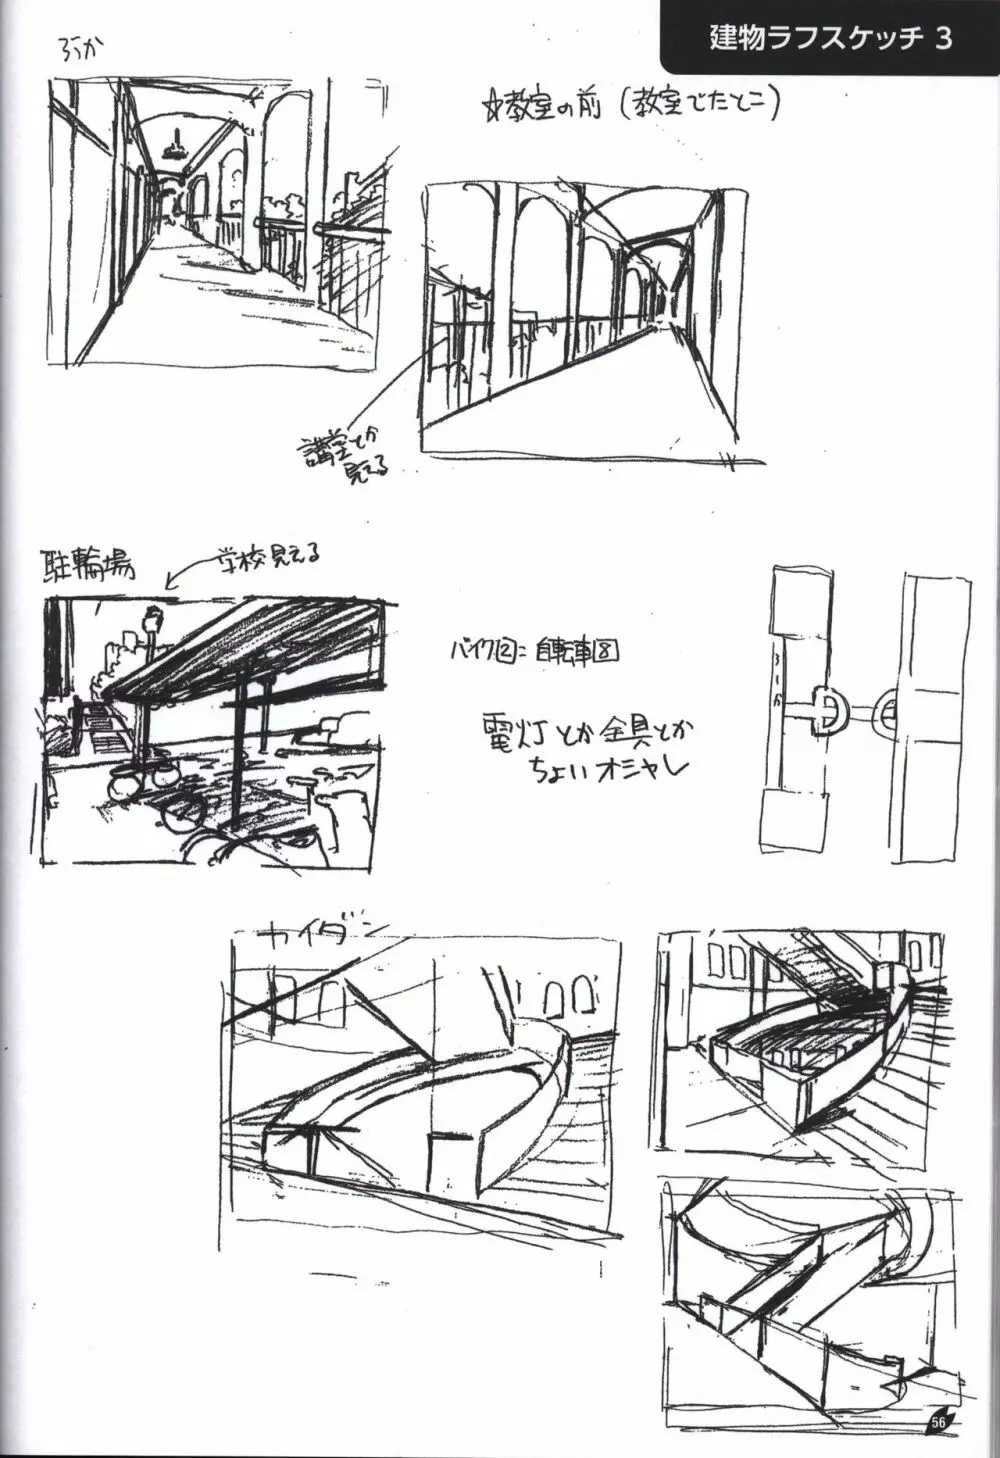 建物ラフスケッチ 3
ろうか
☆教室の前（教室でたとこ）
講堂とか
見える
駐輪場
学校見える
バイク②＝自転車⑧
電灯とか金具とか
ちょいオシャレ
ろーか
カイダン
56